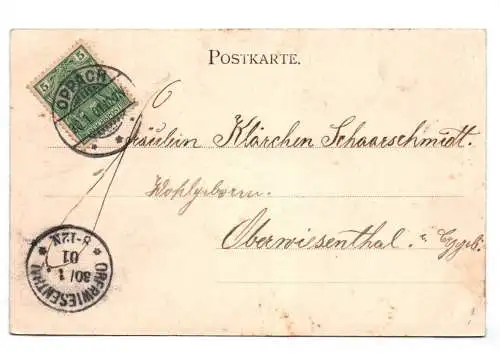 POSTKARTE.
5 5
OPPACH
Fräulein Klärchen Schaarschmidt.
Wohlgeboren.
Oberwiesenthal i. Erzgeb.
OBERWIESENTHAL
30/1
01
8-12N.